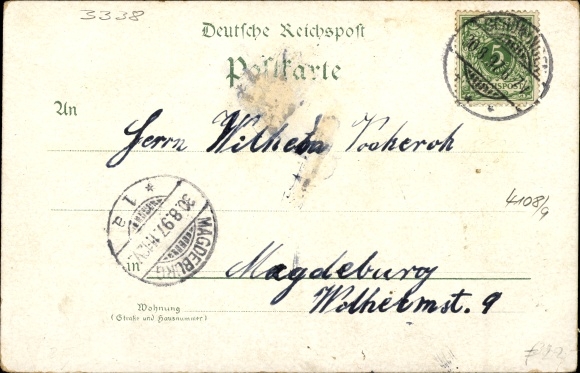 3338
Deutsche Reichspost
Postkarte
5
REICHSPOST
An
Herrn Wilhelm Vocheroh
4108/9
MAGDEBURG
30.8.97.
* 1 a
in Magdeburg
Wilhelmst. 9
Wohnung
(Straße und Hausnummer)